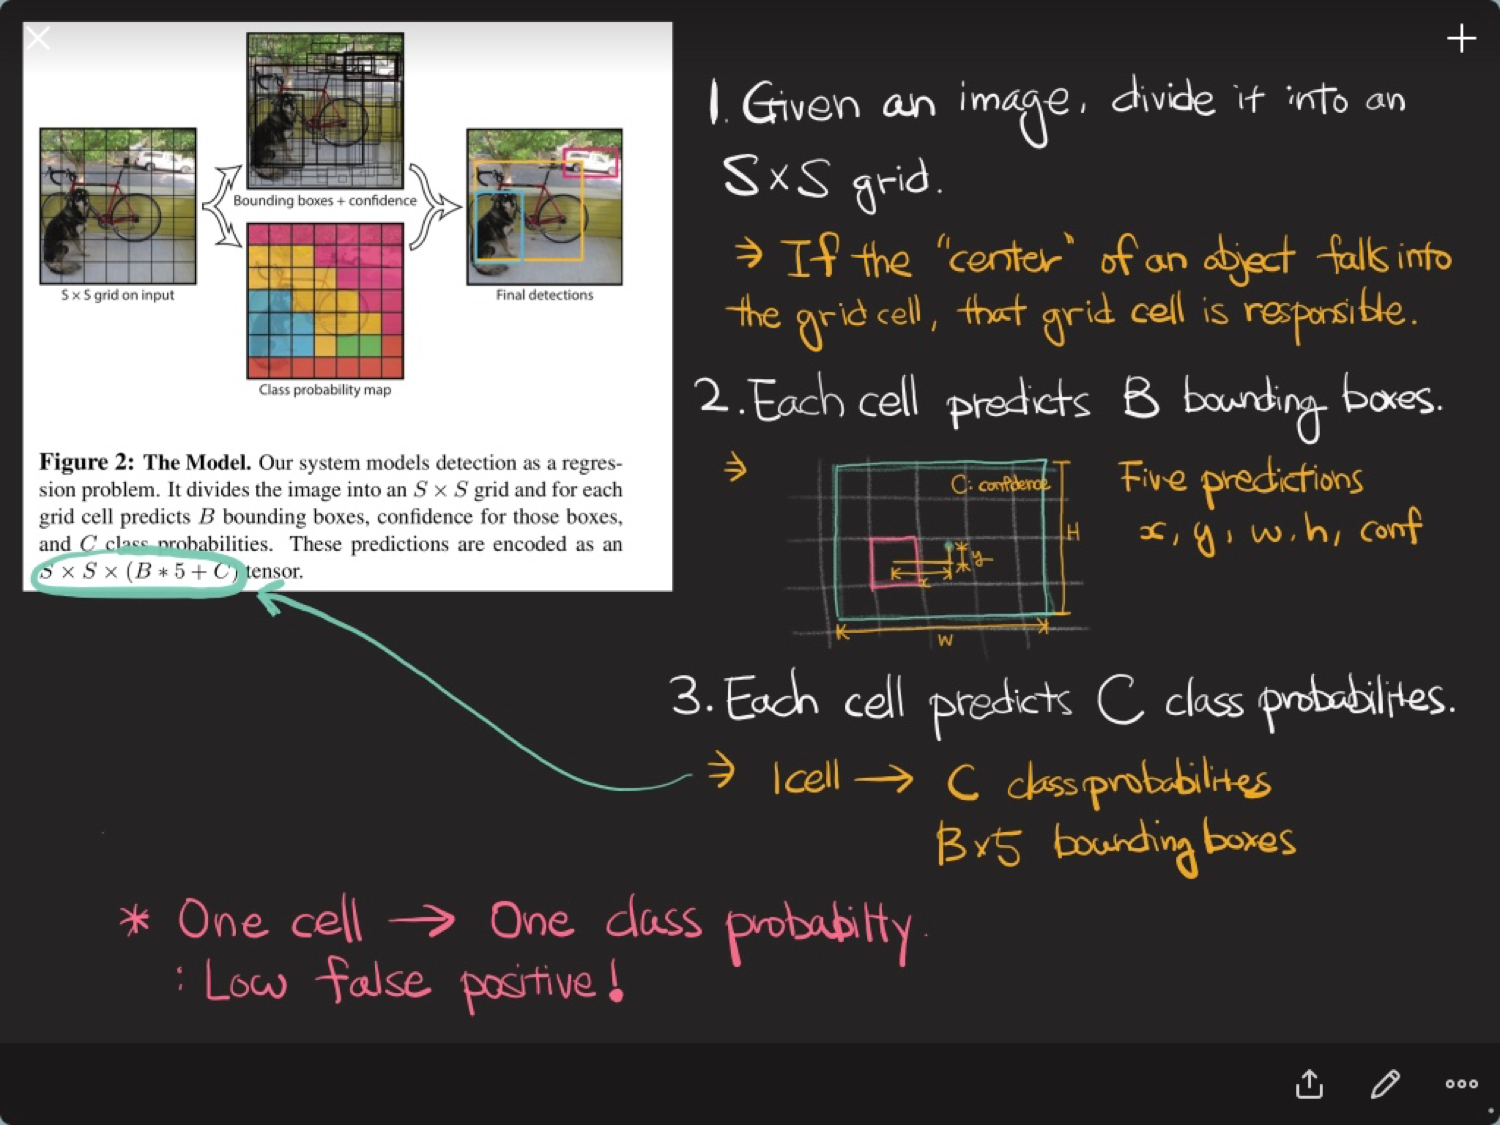 S × S grid on input
Bounding boxes + confidence
Class probability map
Final detections
Figure 2: The Model. Our system models detection as a regres-
sion problem. It divides the image into an S × S grid and for each
grid cell predicts B bounding boxes, confidence for those boxes,
and C class probabilities. These predictions are encoded as an
S × S × (B ∗ 5 + C) tensor.
1. Given an image, divide it into an
S×S grid.
⇒ If the "center" of an object falls into
the grid cell, that grid cell is responsible.
2. Each cell predicts B bounding boxes.
⇒
C: confidence
H
y
x
W
Five predictions
x, y, w, h, conf
3. Each cell predicts C class probabilites.
⇒ 1cell → C class probabilites
B×5 bounding boxes
* One cell → One class probabilty.
: Low false positive!